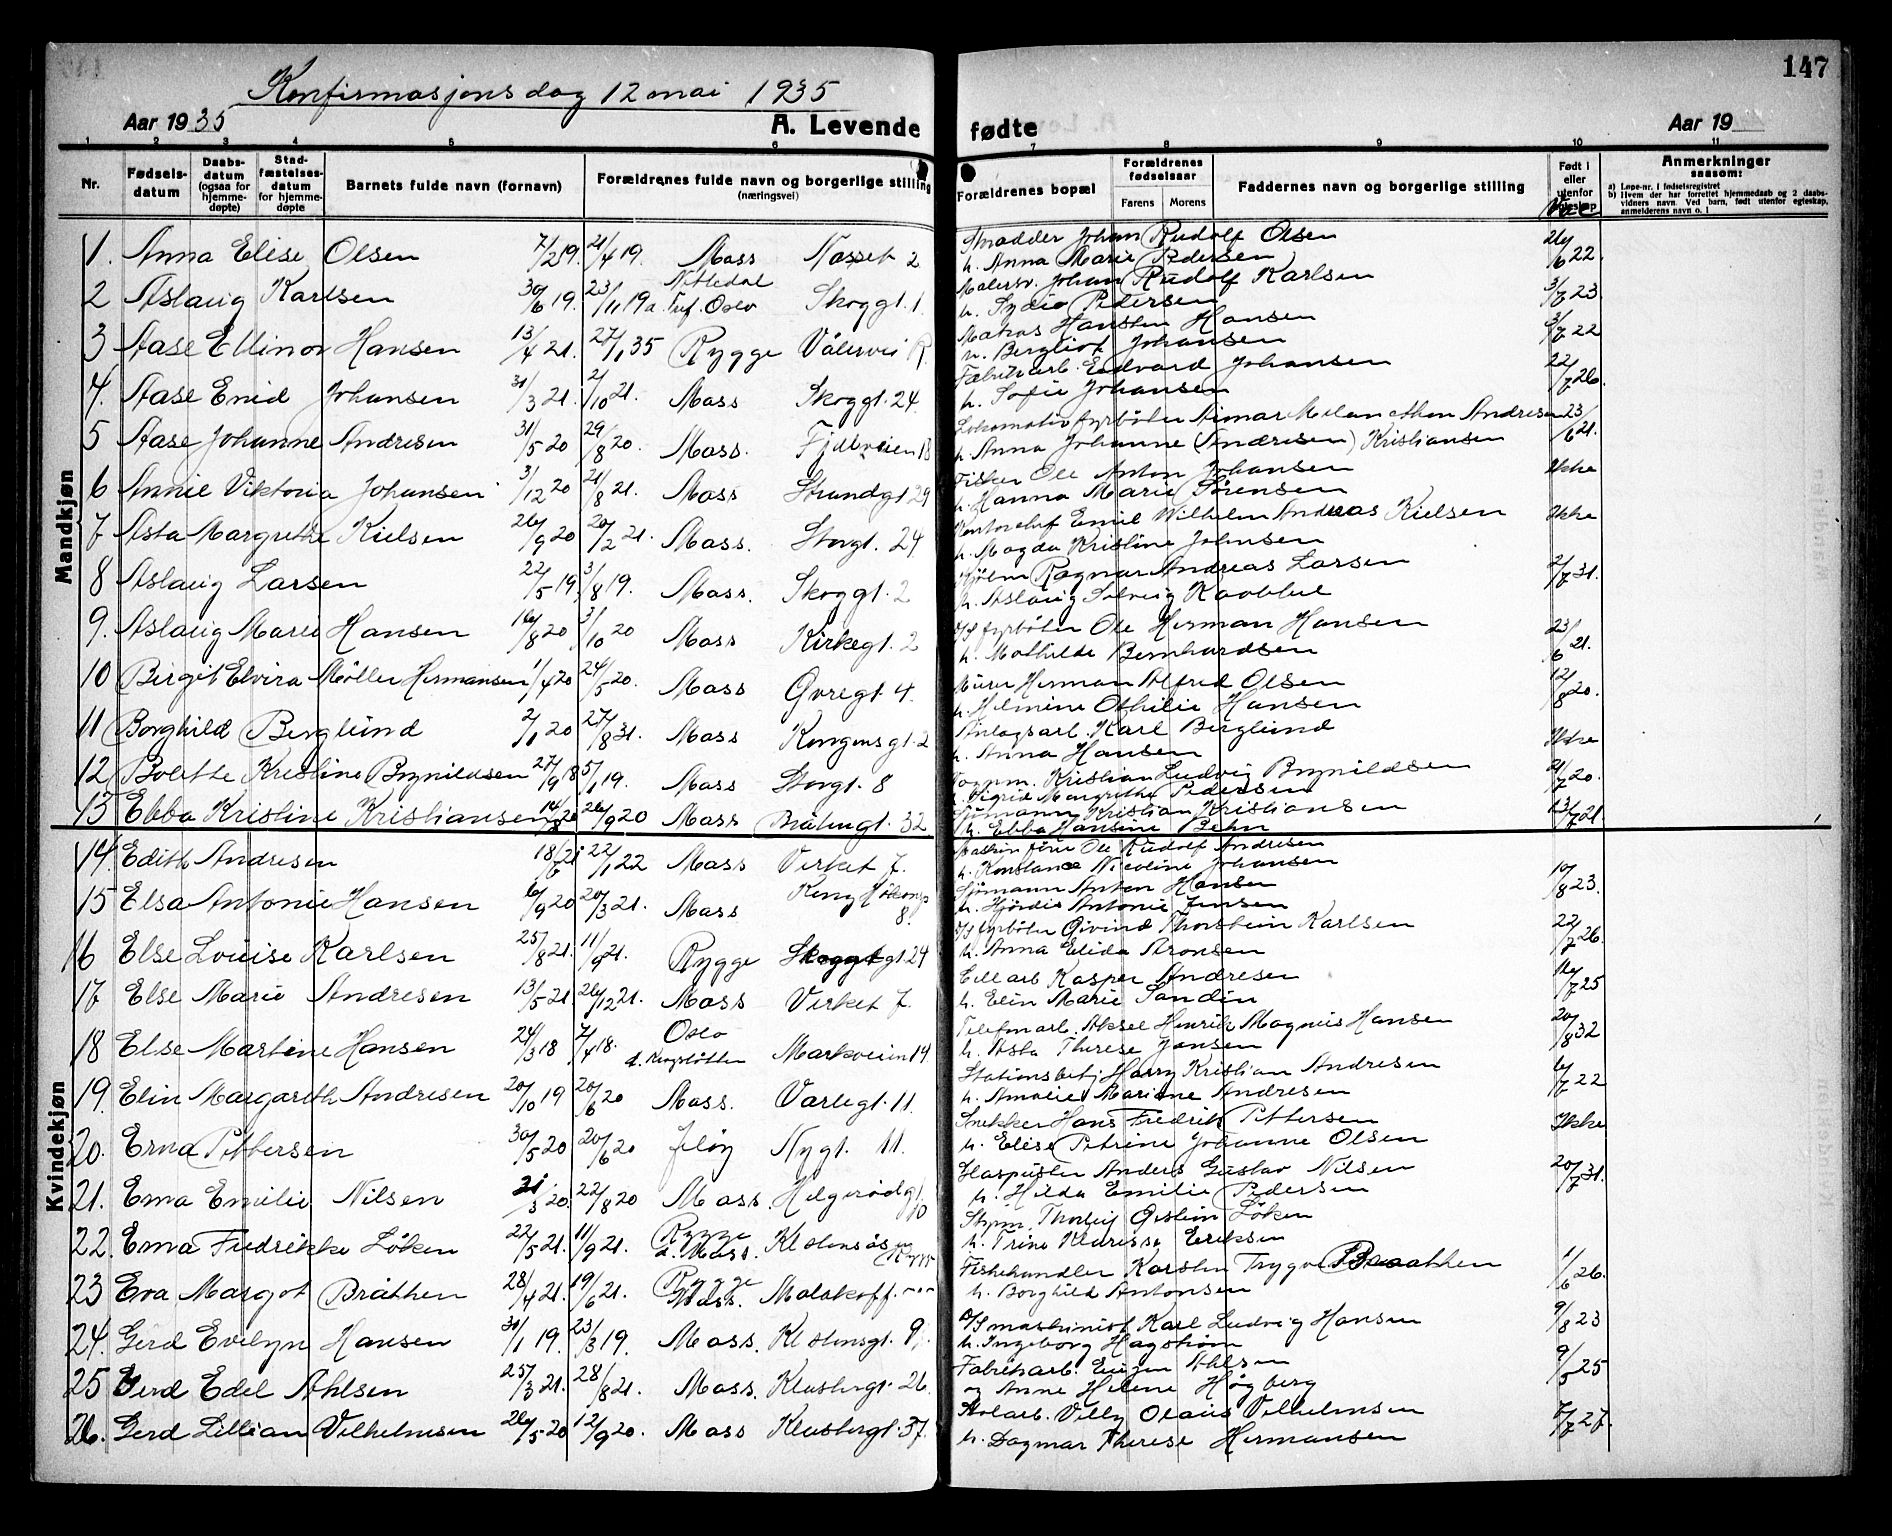 147
Konfirmasjonsdag 12 mai 1935
Aar 1935
A. Levende fødte
Aar 19
1 2 3 4 5 6 7 8 9 10 11
Nr.
Fødsels-datum
Daabs-datum (ogsaa for hjemme-døpte)
Stad-fæstelses-datum for hjemme-døpte
Barnets fulde navn (fornavn)
Forældrenes fulde navn og borgerlige stilling (næringsvei)
Forældrenes bopæl
Forældrenes fødselsaar
Farens Morens
Faddernes navn og borgerlige stilling
Født i eller utenfor
Vac.
Anmerkninger saasom:
a) Løpe-nr. i fødselsregistret
b) Hvem der har forrettet hjemmedaab og 2 daabs-vidners navn. Ved barn, født utenfor egteskap, anmelderens navn o. l
Mandkjøn
1. Anna Elise Olsen 7/2 19. 21/4 19. Moss Nesset 2 Johan Rudolf Olsen 26/6 22.
h. Anna Marie Pedersen
2 Aslaug Karlsen 30/6 19. 23/11 19 Nittedal Oslo Skoggt. 1. Malersv. Johan Rudolf Karlsen 3/7 23
h. Lydia Pedersen
3 Aase Ellinor Hansen 13/4 21. 27/1 35 Rygge Vålervei R. Matros Hansten Hansen 3/7 22
h. Bergliot Johansen
4. Aase Enid Johansen 31/3 21. 2/10 21. Moss Skoggt. 24. Fabrikarb. Edvard Johansen 22/7 26.
h. Sofie Johansen
5 Aase Johanne Andresen 31/5 20 29/8 20. Moss. Fjellveien 13 Lokomotivfyrbøter Andresen 23/6 21.
h. Anna Johanne (Andresen) Kristiansen
6 Annie Viktoria Johansen 3/12 20 21/8 21. Moss Strandgt 29 Fisker Ole Anton Johansen Ikke
h. Hanna Marie Sørensen
7 Asta Margrethe Kielsen 26/9 20 20/2 21. Moss. Storgt. 24 Kontorchef Emil Wilhelm Andreas Kielsen Ikke
h. Magda Kristine Johnsen
8 Aslaug Larsen 22/5 19. 3/8 19. Moss. Skoggt. 2 Ragnar Andreas Larsen 2/7 31.
h. Aslaug Solveig
9. Aslaug Marie Hansen 16/8 20 3/10 20 Moss Kirkegt. 2 fyrbøter Ole Herman Hansen 23/6 21.
h. Mathilde Bernhardsen
10 Birgit Elvira Møller Hermansen 1/4 20 24/5 20. Moss Øvregt. 4. Murer Herman Alfred Olsen 12/8 20.
h. Helmine Othilie Hansen
11 Borghild Berglund 2/1 20 27/8 31. Moss Kongensgt. 2 Anlagsarb. Karl Berglund Ikke
h. Anna Hansen
12 Bolette Kristine Brynildsen 27/9 18 5/1 19. Moss Storgt. 8 Kristian Ludvig Brynildsen 21/7 20.
h. Sigrid Margrethe Pedersen
13 Ebba Kristine Kristiansen 14/8 20 26/9 20 Moss Bråtengt. 32 Sjømann Kristian Kristiansen 13/7 21.
h. Ebba Hansine Behn
Kvindekjøn
14. Edith Andresen 18/6 21 22/1 22 Moss Verket 7. Ole Rudolf Andresen
h. Konstanse Nicoline Johansen 10/8 23.
15 Elsa Antonie Hansen 6/9 20 20/3 21. Moss Kong Håkonsg 8. Sjømann Anton Hansen
h. Hjørdis Antonie Jensen
16 Else Louise Karlsen 25/8 21. 11/9 21. Rygge Skoggt 24 fyrbøter Øivind Thorstein Karlsen 22/7 26.
h. Anna Elida Aronsen
17. Else Marie Andresen 13/5 21 26/12 21. Moss Verket 7. Cell arb Kasper Andresen 16/7 25
h. Elin Marie Sandin
18 Else Martine Hansen 24/3 18 7/4 18. Oslo Markveien 14 Telefonarb. Aksel Henrik Magnus Hansen 20/8 32
h. Asta Therese Jansen
19. Elin Margareth Andresen 20/10 19 20/6 20 Moss. Varlegt. 11. Stationsbetj Harry Kristian Andresen 6/7 22
h. Amalie Mariane Andresen
20. Erna Pettersen 30/5 20 20/6 20 Jeløy Nygt. 11. Snekker Hans Fredrik Pettersen Ikke
h. Elise Petrine Johanne Olsen
21. Erna Emilie Nilsen 21/3 20. 22/8 20 Moss. Helgerødgt. 10 Glaspuster Anders Gustav Nilsen 20/7 31.
h. Hilda Emilie Pedersen
22. Erna Fredrikke Løken 22/5 21. 11/9 21. Rygge d. Moss. Klostersåsen Rygge Thorleif Øistein Løken
h. Trine Klarisse Eriksen
23 Eva Margot Bråthen 28/4 21. 19/6 21. Rygge Moss. Malakoff Fiskehandler Karsten Trygve Braathen 1/6 26.
h. Borghild Antonsen
24. Gerd Evelyn Hansen 30/1 19. 23/3 19. Moss. Klostergt. 9. maskinist Karl Ludvig Hansen 9/8 23
h. Ingeborg Hagstrøm
25 Gerd Edel Ahlsen 25/3 21. 28/8 21. Moss. Klostergt. 26. Fabrikarb. Eugen Ahlsen 9/5 25
og Anne Helene Høgberg
26. Gerd Lillian Vilhelmsen 26/5 20 12/9 20. Moss Klostergt. 37. Villy Olaus Vilhelmsen 7/7 27.
h. Dagmar Therese Hermansen